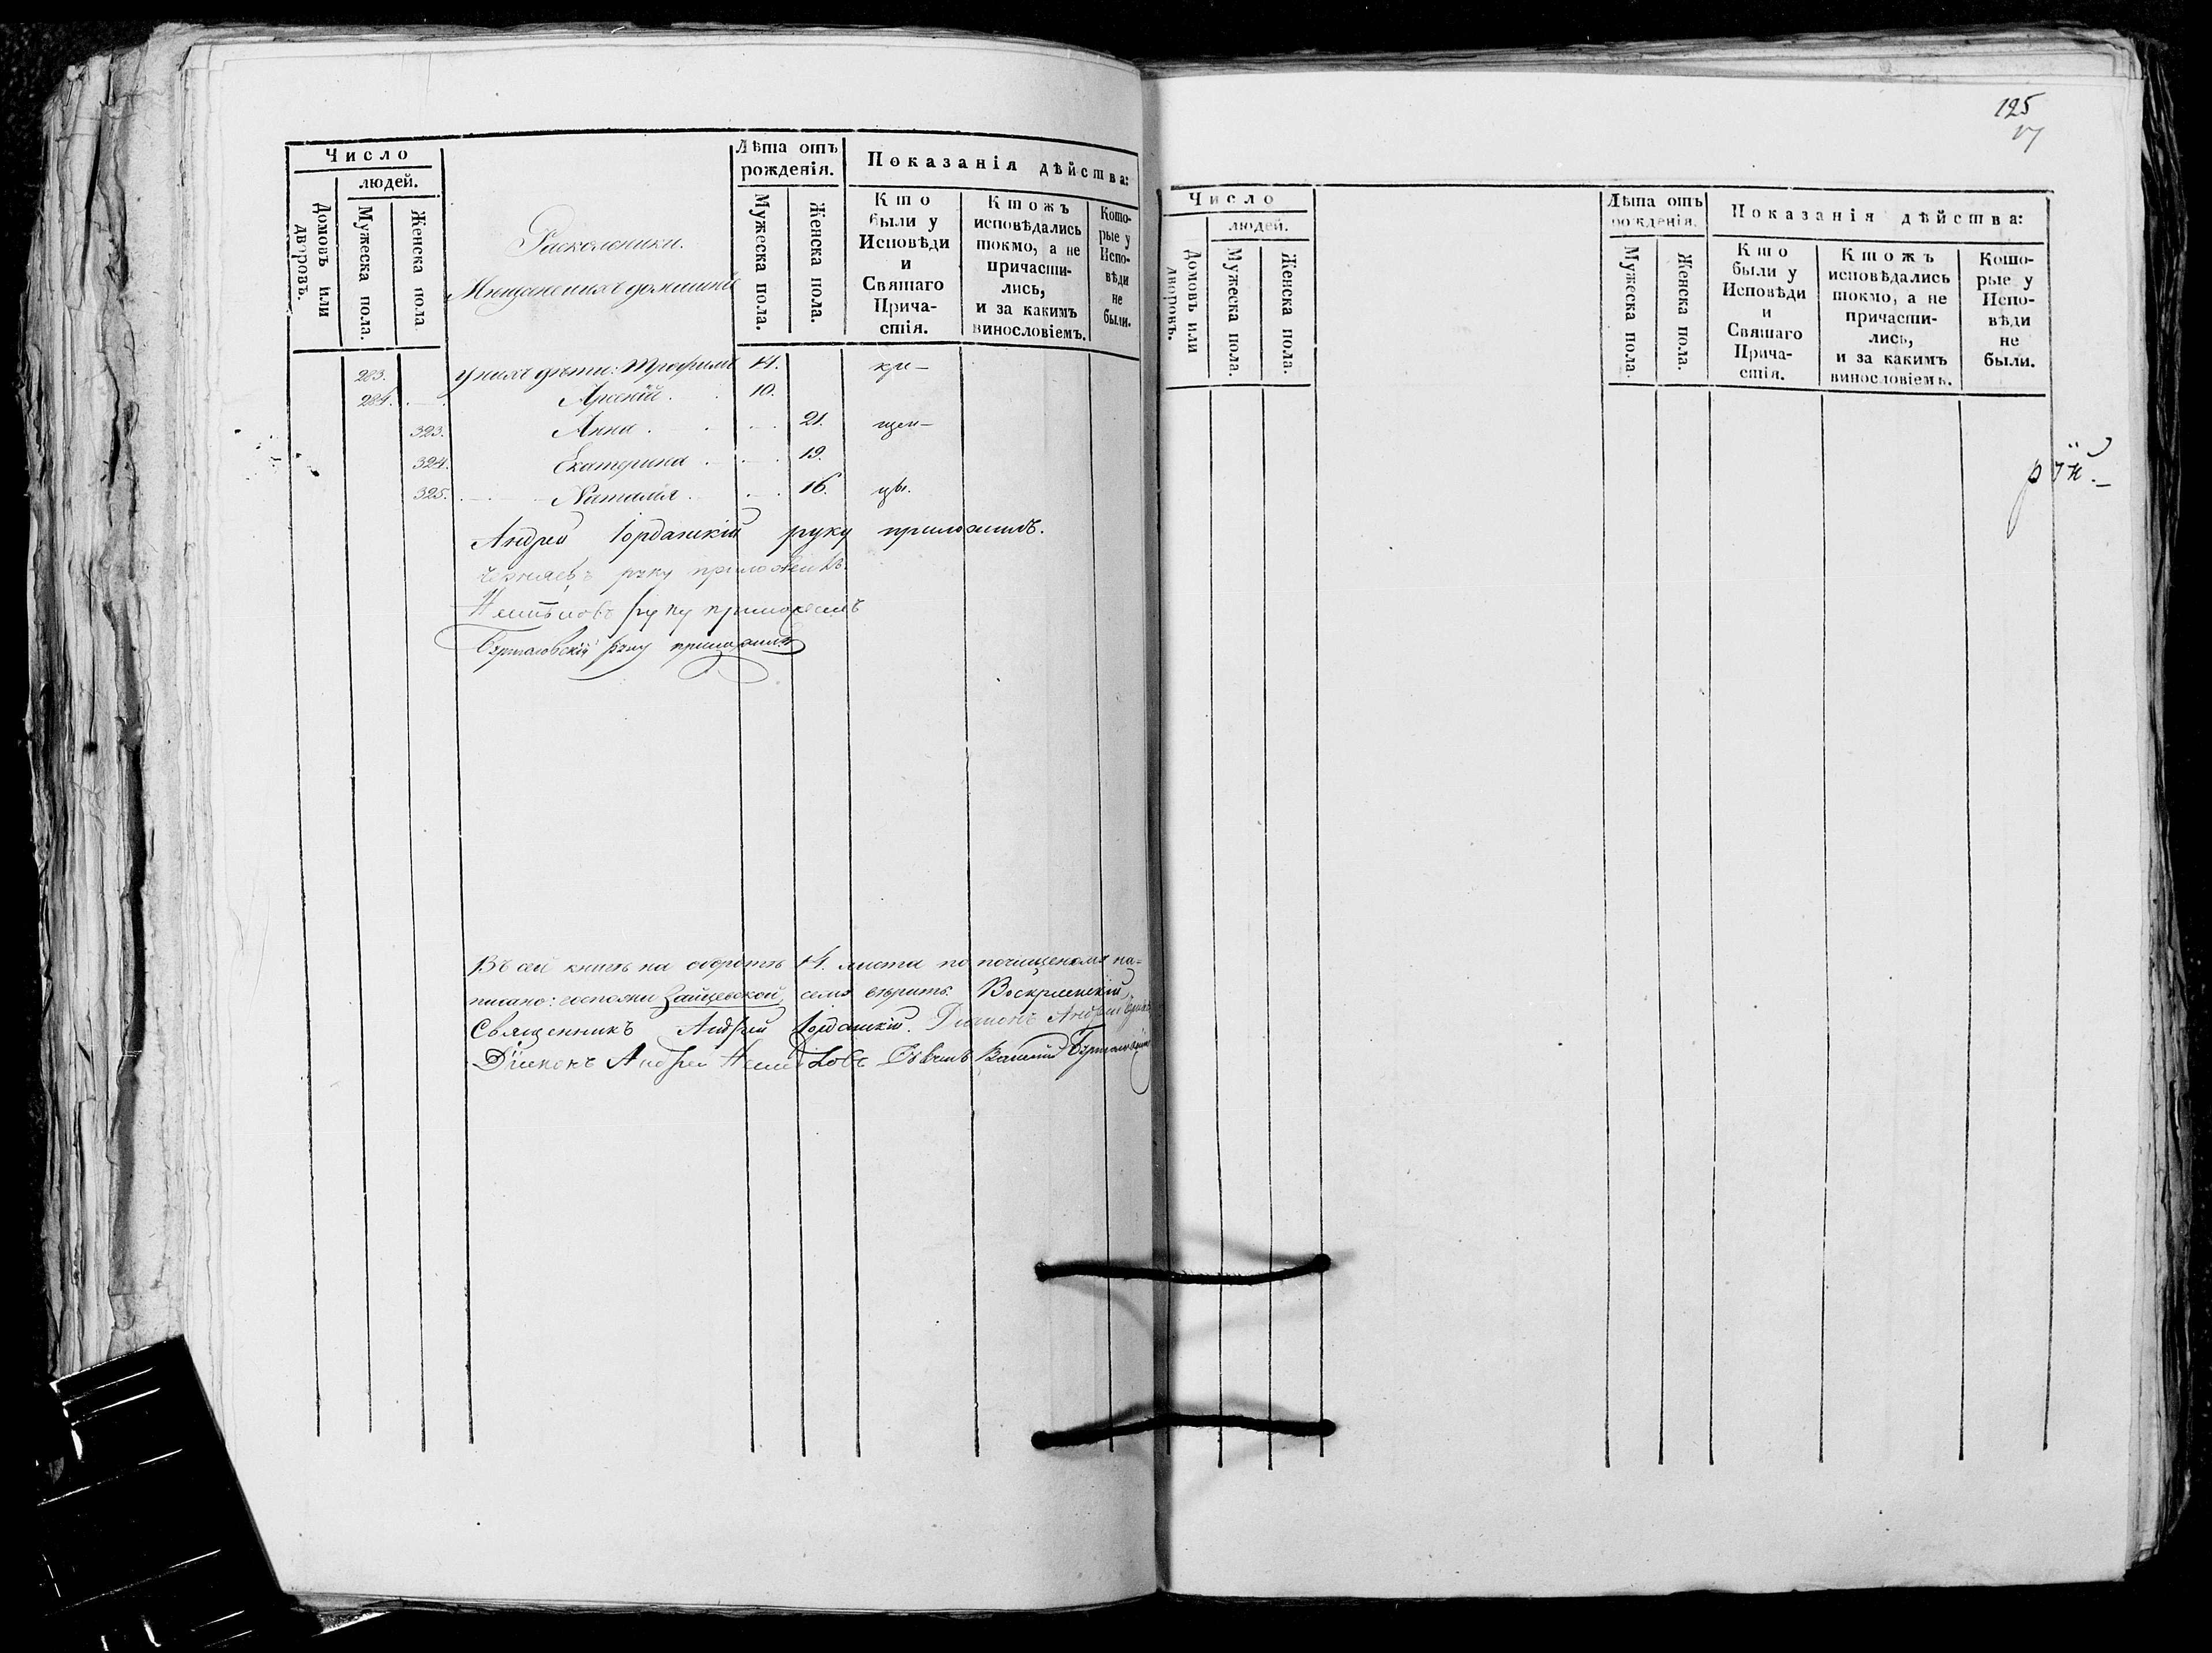 Число
людей.
Домовъ или дворовъ.
Мужеска пола.
Женска пола.
Раскольники.
Мещане и ихъ домашніе
Лѣта отъ рожденія.
Мужеска пола.
Женска пола.
Показанія дѣйства:
Кто были у Исповѣди и Святаго Причастія.
Ктожъ исповѣдались токмо, а не причастились, и за какимъ винословіемъ.
Которые у Исповѣди не были.
283. у нихъ дѣти: Трофимъ 14. кре-
284. Арсеній 10.
323. Анна 21. щен-
324. Екатерина 19.
325. Наталія 16. цы.
Андрей Іорданскій руку приложилъ.
Черняевъ руку приложилъ.
руку приложилъ
руку приложилъ
Въ сей книгѣ на оборотѣ 14. листа по почищеному на=
писано: госпожи Зайцевской, сему вѣрить. Воскресенскій
Священникъ Андрей Іорданскій. Діаконъ Андрей
Діаконъ Андрей
125
17
Число
людей.
Домовъ или дворовъ.
Мужеска пола.
Женска пола.
Лѣта отъ рожденія.
Мужеска пола.
Женска пола.
Показанія дѣйства:
Кто были у Исповѣди и Святаго Причастія.
Ктожъ исповѣдались токмо, а не причастились, и за какимъ винословіемъ.
Которые у Исповѣди не были.